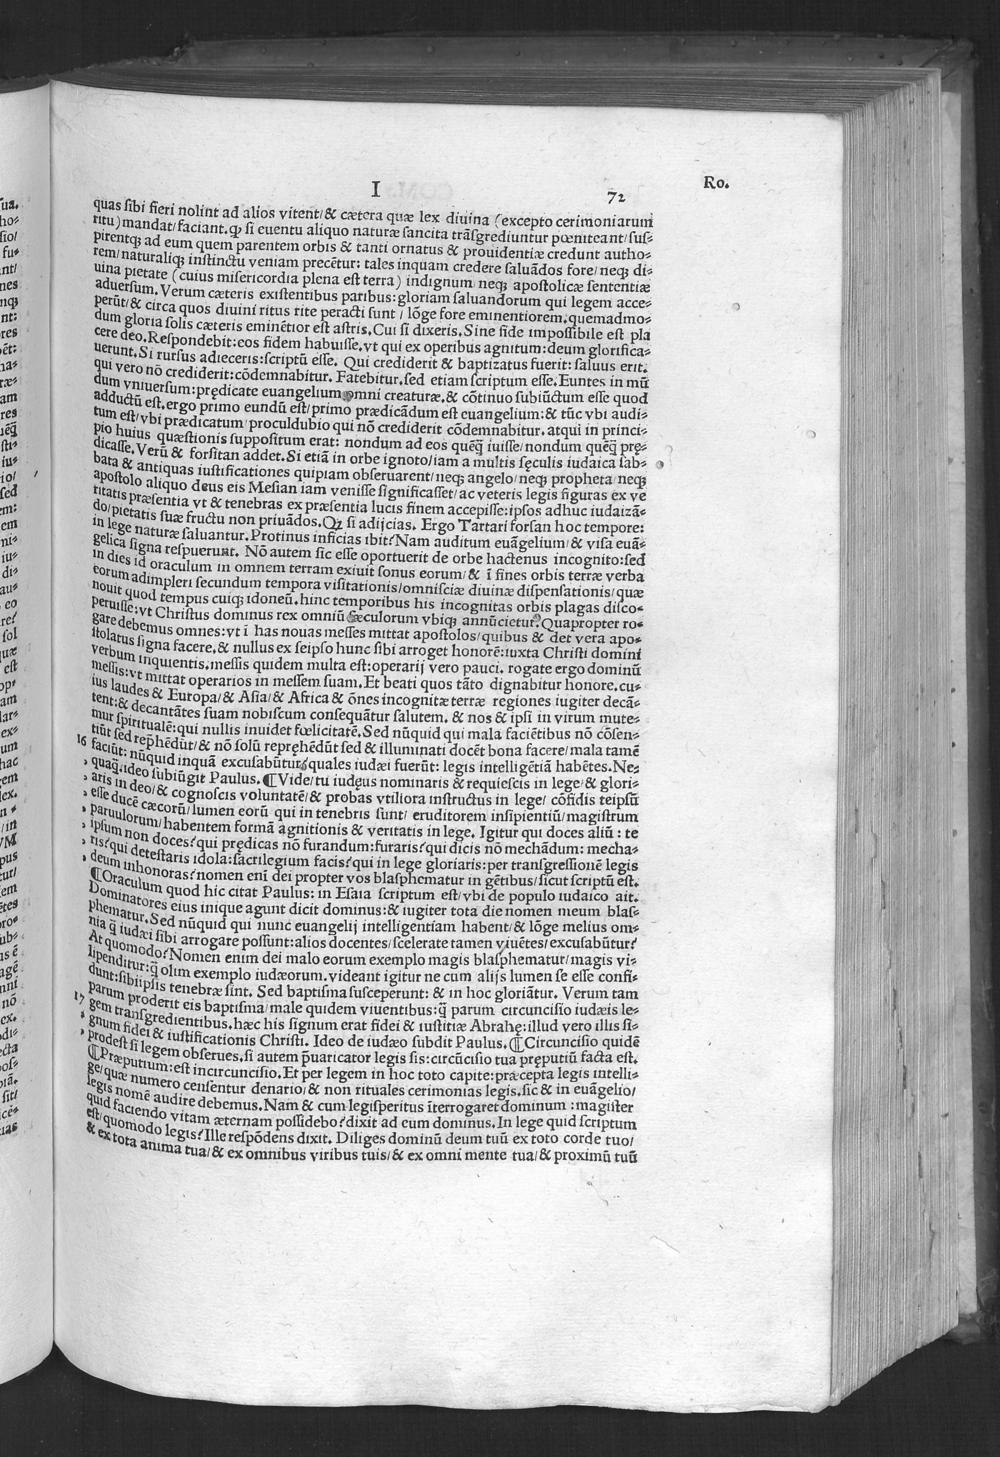 I 72 Ro.
quas sibi fieri nolint ad alios vitent/& cætera quæ lex diuina (excepto cerimoniarum
ritu) mandat/faciant.ꝙ si euentu aliquo naturæ sancita trãsgrediuntur pœniteant/sus⸗
pirentqꝫ ad eum quem parentem orbis & tanti ornatus & prouidentiæ credunt autho⸗
rem/naturaliqꝫ instinctu veniam precẽtur: tales inquam credere saluãdos fore/neqꝫ di⸗
uina pietate (cuius misericordia plena est terra) indignum neqꝫ apostolicæ sententiæ
aduersum. Verum cæteris existentibus paribus: gloriam saluandorum qui legem acce⸗
perũt/& circa quos diuini ritus rite peracti sunt / lõge fore eminentiorem.quemadmo⸗
dum gloria solis cæteris eminẽtior est astris. Cui si dixeris. Sine fide impossibile est pla
cere deo. Respondebit: eos fidem habuisse. vt qui ex operibus agnitum: deum glorifica⸗
uerunt. Si rursus adieceris: scriptũ esse. Qui crediderit & baptizatus fuerit: saluus erit.
qui vero nõ crediderit: cõdemnabitur. Fatebitur. sed etiam scriptum esse. Euntes in mũ
dum vniuersum: prędicate euangelium omni creaturæ. & cõtinuo subiũctum esse quod
adductũ est. ergo primo eundũ est/primo prædicãdum est euangelium: & tũc vbi audi⸗
tum est/vbi prædicatum proculdubio qui nõ crediderit cõdemnabitur. atqui in princi⸗
pio huius quæstionis suppositum erat: nondum ad eos quẽq̃ iuisse/nondum quẽq̃ prę⸗
dicasse. Verũ & forsitan addet. Si etiã in orbe ignoto/iam a multis sęculis iudaica sab⸗
bata & antiquas iustificationes quipiam obseruarent/neqꝫ angelo/neqꝫ propheta neqꝫ
apostolo aliquo deus eis Mesian iam venisse significasset/ac veteris legis figuras ex ve
ritatis præsentia vt & tenebras ex præsentia lucis finem accepisse: ipsos adhuc iudaizã⸗
do/pietatis suæ fructu non priuãdos. Qꝫ si adijcias. Ergo Tartari forsan hoc tempore:
in lege naturæ saluantur. Protinus inficias ibit? Nam auditum euãgelium/& visa euã⸗
gelica signa respuerunt. Nõ autem sic esse oportuerit de orbe hactenus incognito: sed
in dies id oraculum in omnem terram exiuit sonus eorum/& ĩ fines orbis terræ verba
eorum adimpleri secundum tempora visitationis/omnisciæ diuinæ dispensationis/quæ
nouit quod tempus cuiqꝫ idoneũ. hinc temporibus his incognitas orbis plagas disco⸗
peruisse: vt Christus dominus rex omniũ sæculorum vbiqꝫ annũcietur. Quapropter ro⸗
gare debemus omnes: vt ĩ has nouas messes mittat apostolos/quibus & det vera apo⸗
stolatus signa facere. & nullus ex seipso hunc sibi arroget honorẽ: iuxta Christi domini
verbum inquientis. messis quidem multa est: operarij vero pauci. rogate ergo dominũ
messis: vt mittat operarios in messem suam. Et beati quos tãto dignabitur honore. cu⸗
ius laudes & Europa/& Asia/& Africa & õnes incognitæ terræ regiones iugiter decã⸗
tent: & decantãtes suam nobiscum consequãtur salutem. & nos & ipsi in virum mute⸗
mur spiritualẽ: qui nullis inuidet fœlicitatẽ. Sed nũquid qui mala faciẽtibus nõ cõsen⸗
tiũt sed rep̃hẽdũt/& nõ solũ repręhẽdũt sed & illuminati docẽt bona facere/mala tamẽ
16 faciũt: nũquid inquã excusabũtur? quales iudæi fuerũt: legis intelligẽtiã habẽtes. Ne⸗
quaq̃. ideo subiũgit Paulus. ¶ Vide/tu iudęus nominaris & requiescis in lege/& glori⸗
aris in deo/& cognoscis voluntatẽ/& probas vtiliora instructus in lege/ cõfidis teipsũ
esse ducẽ cæcorũ/lumen eorũ qui in tenebris sunt/ eruditorem insipientiũ/magistrum
paruulorum/habentem formã agnitionis & veritatis in lege. Igitur qui doces aliũ : te
ipsum non doces? qui prędicas nõ furandum: furaris? qui dicis nõ mechãdum: mecha⸗
ris? qui detestaris idola: sacrilegium facis? qui in lege gloriaris: per transgressionẽ legis
deum inhonoras? nomen enĩ dei propter vos blasphematur in gẽtibus/sicut scriptũ est.
¶ Oraculum quod hic citat Paulus: in Esaia scriptum est/vbi de populo iudaico ait.
Dominatores eius inique agunt dicit dominus: & iugiter tota die nomen meum blas⸗
phematur. Sed nũquid qui nunc euangelij intelligentiam habent/& lõge melius om⸗
nia q̃ iudæi sibi arrogare possunt: alios docentes/scelerate tamen viuẽtes/excusabũtur?
At quomodo? Nomen enim dei malo eorum exemplo magis blasphematur/magis vi⸗
lipenditur: q̃ olim exemplo iudæorum. videant igitur ne cum alijs lumen se esse confi⸗
dunt: sibiipsis tenebræ sint. Sed baptisma susceperunt: & in hoc gloriãtur. Verum tam
parum proderit eis baptisma/male quidem viuentibus: q̃ parum circuncisio iudæis le⸗
17 gem transgredientibus. hæc his signum erat fidei & iustitiæ Abrahę: illud vero illis si⸗
gnum fidei & iustificationis Christi. Ideo de iudæo subdit Paulus. ¶ Circuncisio quidẽ
prodest si legem obserues. si autem p̃uaricator legis sis: circũcisio tua pręputiũ facta est.
¶ Præputium: est incircuncisio. Et per legem in hoc toto capite: præcepta legis intelli⸗
ge/quæ numero censentur denario/& non rituales cerimonias legis. sic & in euãgelio/
legis nomẽ audire debemus. Nam & cum legisperitus ĩterrogaret dominum : magister
quid faciendo vitam æternam possidebo? dixit ad eum dominus. In lege quid scriptum
est/quomodo legis? Ille respõdens dixit. Diliges dominũ deum tuũ ex toto corde tuo/
& ex tota anima tua/& ex omnibus viribus tuis/& ex omni mente tua/& proximũ tuũ